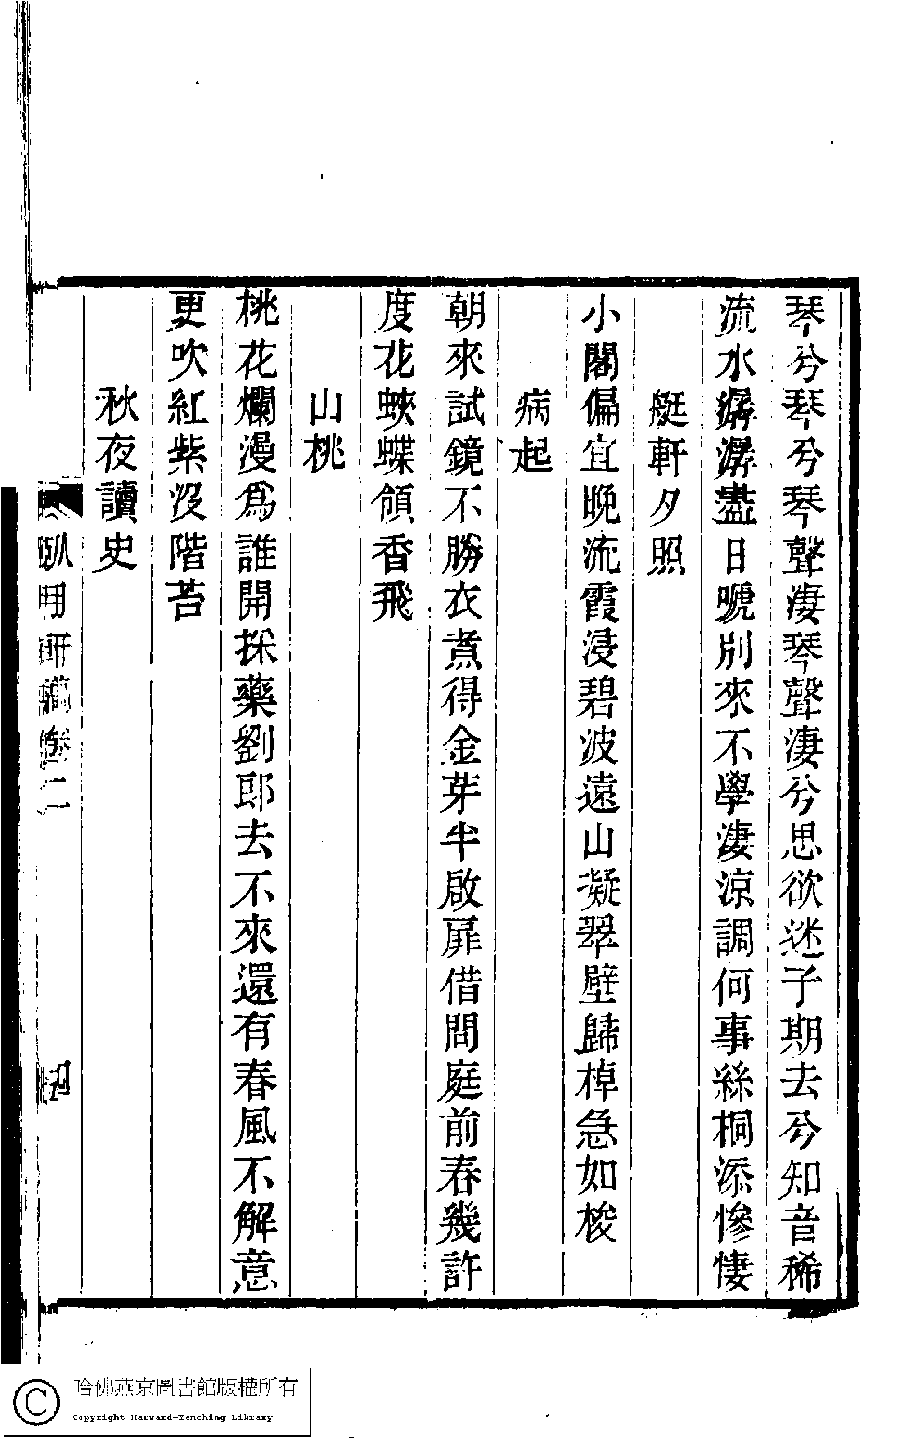 琴兮琴兮琴聲淒琴聲淒兮思欲迷子期去兮知音稀
流水潺潺盡日號別來不學淒涼調何事絲桐添慘悽
艇軒夕照
小閣偏宜晚流霞浸碧波遠山凝翠壁歸棹急如梭
病起
朝來試鏡不勝衣煮得金芽半啟扉借問庭前春幾許
度花蛺蝶領香飛
山桃
桃花爛漫為誰開採藥劉郎去不來還有春風不解意
更吹紅紫沒階苔
秋夜讀史
卷二
哈佛燕京圖書館版權所有
Copyright Harvard-Yenching Library